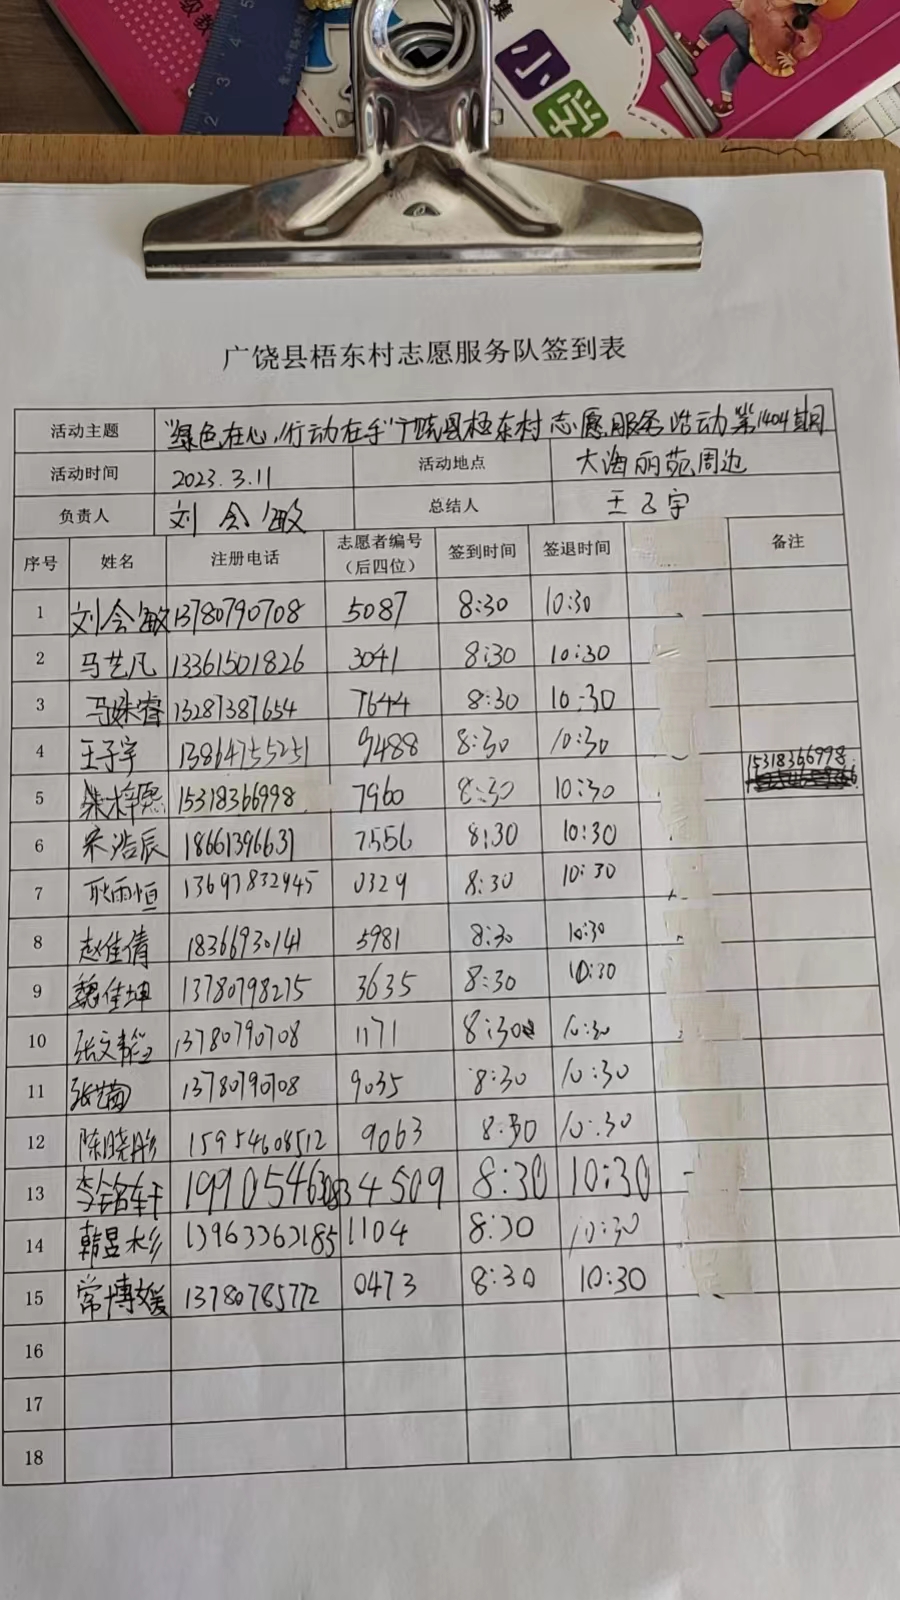 小学
广饶县梧东村志愿服务队签到表
活动主题 "绿色在心,行动在手"广饶县梧东村志愿服务活动第1404期
活动时间 2023.3.11 活动地点 大海丽苑周边
负责人 刘会敏 总结人 王子宇
序号 姓名 注册电话 志愿者编号(后四位) 签到时间 签退时间 备注
1 刘会敏 13780790708 5087 8:30 10:30
2 马艺凡 13361501826 3041 8:30 10:30
3 马姝睿 13287387654 7644 8:30 10:30
4 王子宇 13864755251 9488 8:30 10:30
5 15318366998 7960 8:30 10:30 15318366998
6 宋浩辰 18661396631 7556 8:30 10:30
7 耿雨恒 13697832945 0329 8:30 10:30
8 赵佳倩 18366930141 5981 8:30 10:30
9 魏佳坤 13780798275 3635 8:30 10:30
10 13780790708 1171 8:30 10:30
11 13780790708 9035 8:30 10:30
12 陈晓彤 15954608512 9063 8:30 10:30
13 4509 8:30 10:30
14 韩昱杉 13963363185 1104 8:30 10:30
15 常博媛 13780785772 0473 8:30 10:30
16
17
18